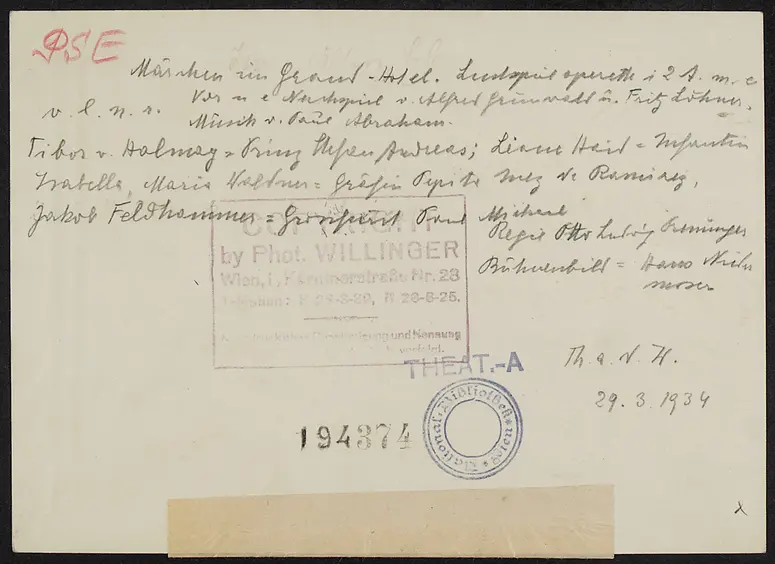 PSE
Märchen im Grand-Hotel. Lustspieloperette i 2 A. m. e
v. l. n. r. Vor u e Nachspiel v. Alfred Grünwald u. Fritz Löhner.
Musik v. Paul Abraham.
Tibor v. Halmay = Prinz Stefan Andreas; Liane Haid = Infantin
Isabella, Maria Waldner = Gräfin Pepita Inez de Ramirez,
Jakob Feldhammer = Großfürst Paul Michael
Regie Otto Ludwig Preminger
Bühnenbild = Hans Nieder
moser
COPYRIGHT
by Phot. WILLINGER
Wien, I., Kärntnerstraße Nr. 28
Telephon: R 28-6-25.
und Nennung
THEAT.-A
Th. a. d. W.
29. 3. 1934
194374
National-Bibliothek * Wien *
x